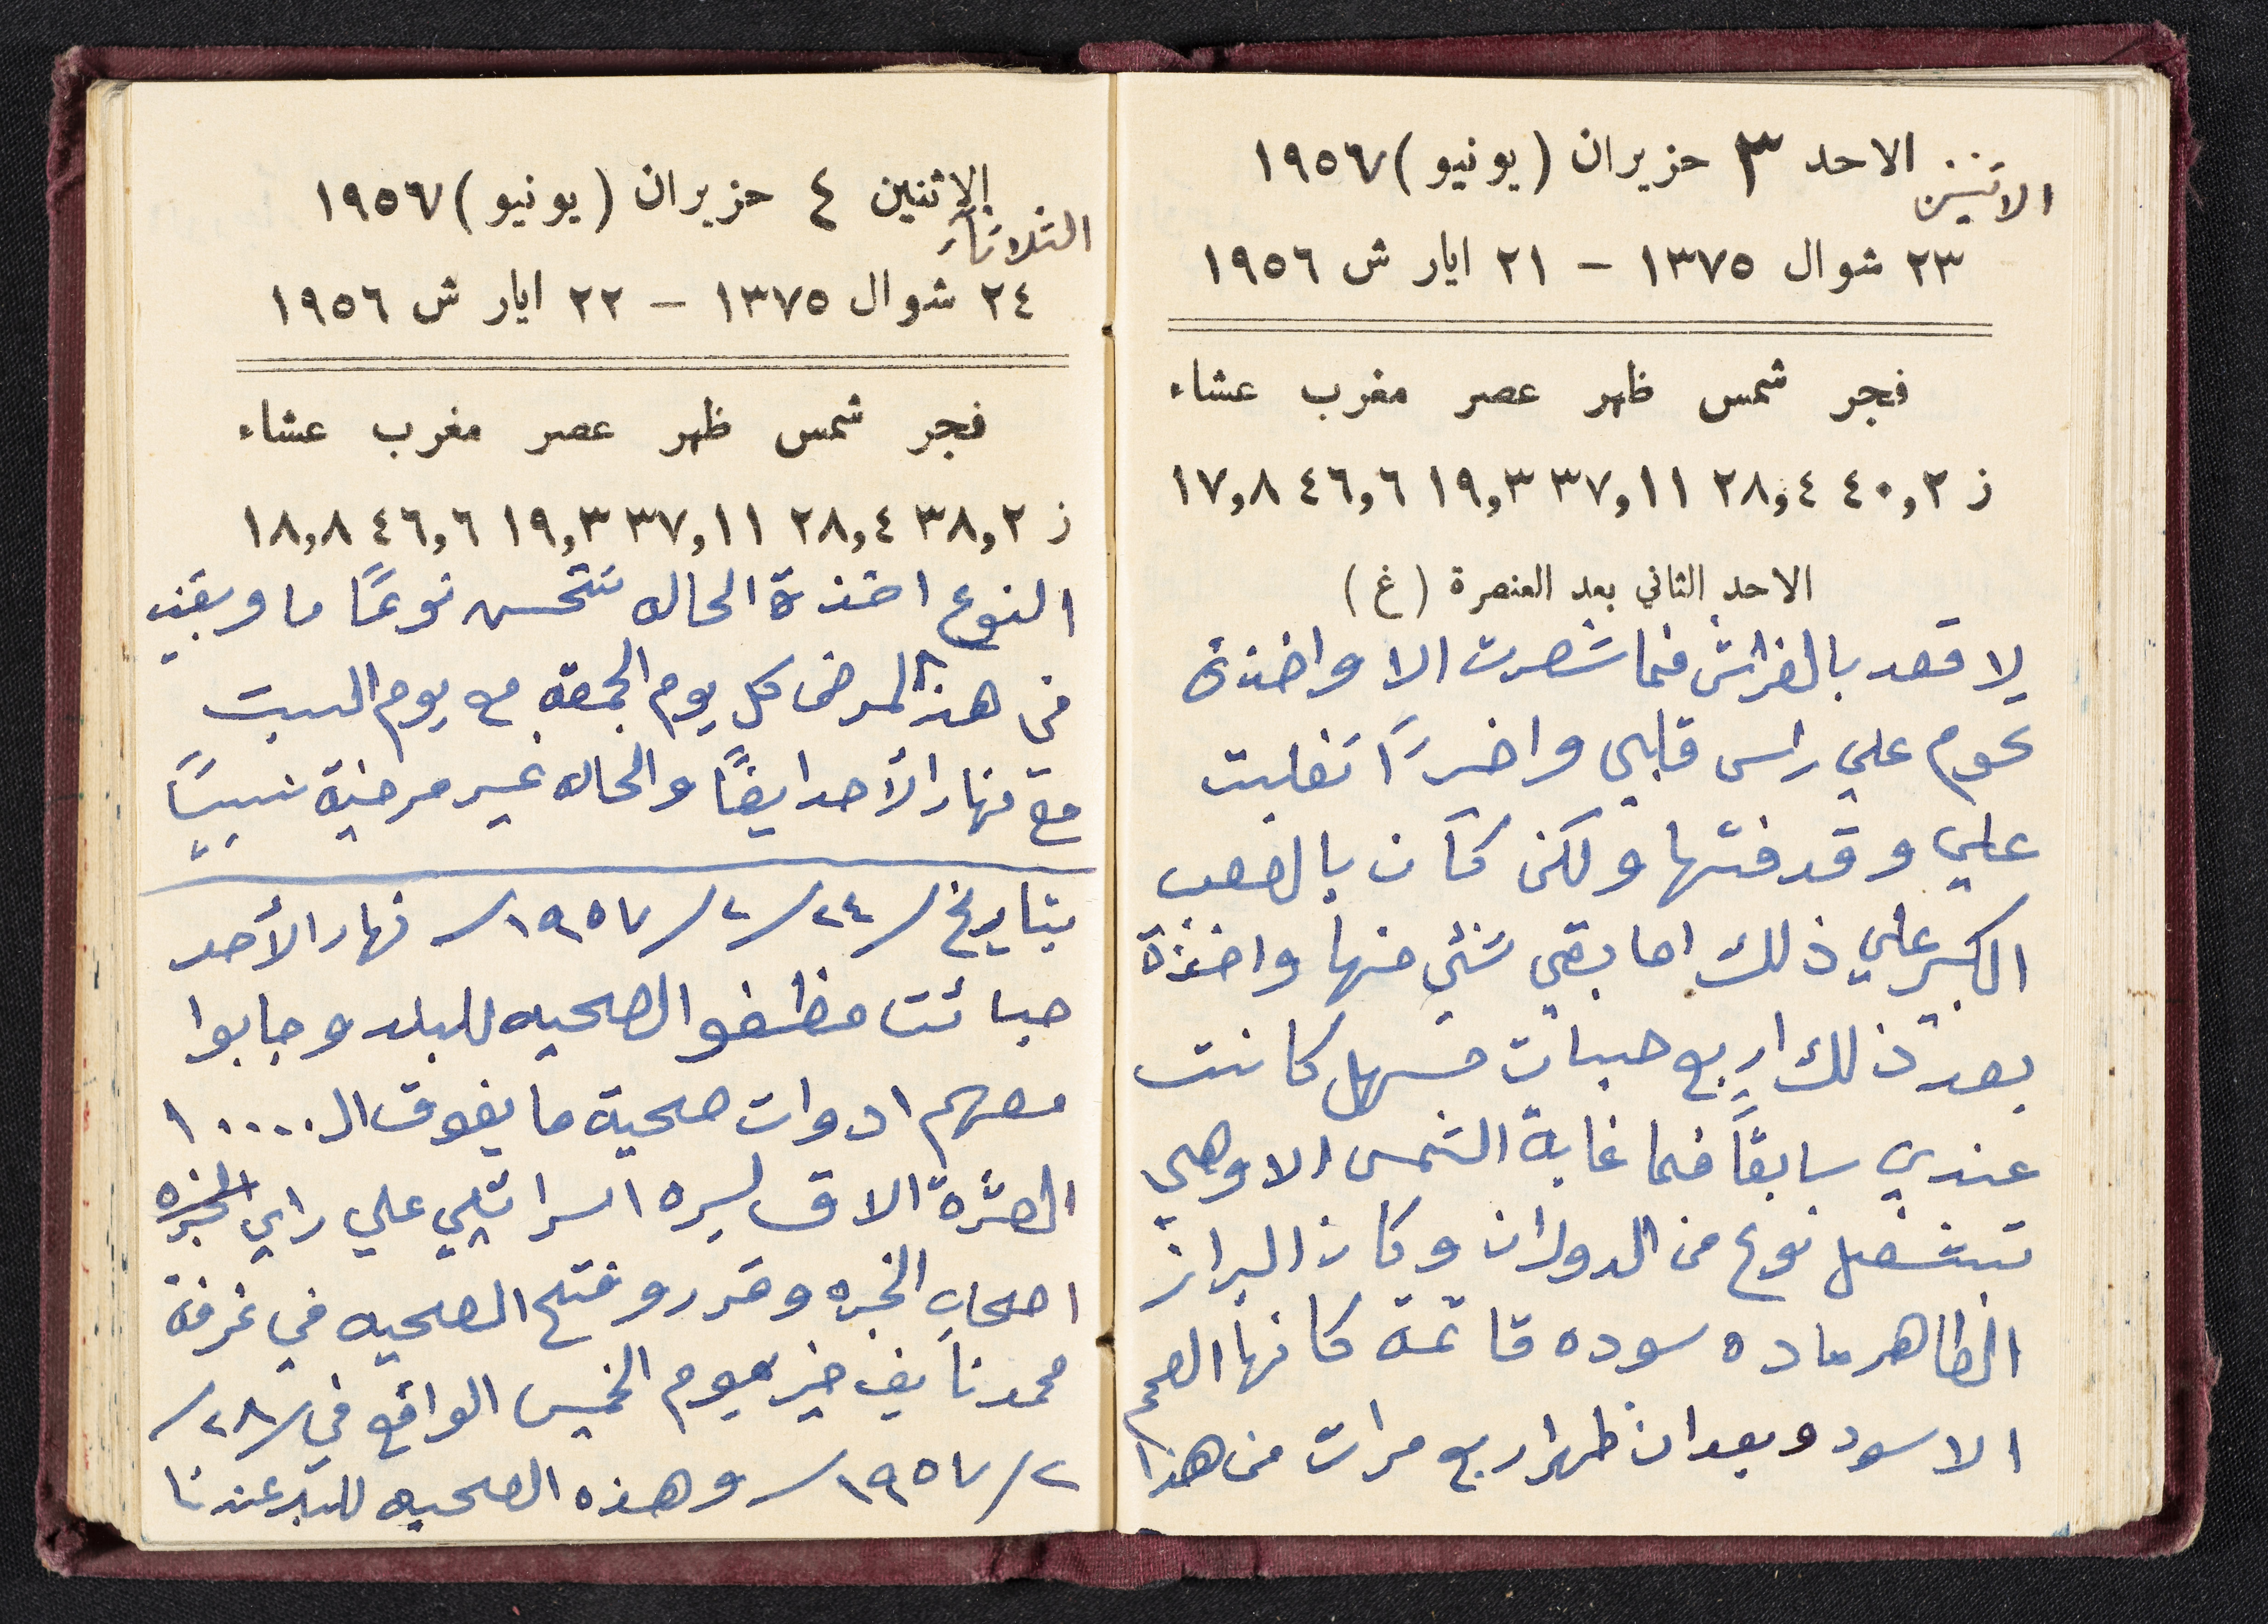 الاحد ٣ حزيران (يونيو) ١٩٥٦٧
الاثنين
٢٣ شوال ١٣٧٥ – ٢١ ايار ش ١٩٥٦
فجر شمس ظهر عصر مغرب عشاء
ز ٤٠,٢ ٢٨,٤ ٣٧,١١ ١٩,٣ ٤٦,٦ ١٧,٨
الاحد الثاني بعد العنصرة (غ)
لاقعد بالفراش فما شعرت الا واخذة
تحوم علي راس قلبي واخيرًا تغلبت
علي وقدفتها ولكن كان بالصعب
الكبير علي ذلك اما بقي شئي منها واخذة
بعد ذلك اربع حبات مسهل كانت
عندي سابقاً فما غابة الشمس الا وهي
تبتشغل نوع من الدوران وكان البراز
الظاهر ماده سوده قاتمة كانها الفحم
الاسود وبعد ان ظهر اربع مرات من هذا
الاثنين ٤ حزيران (يونيو) ١٩٥٦٧
الثلاثاء
٢٤ شوال ١٣٧٥ – ٢٢ ايار ش ١٩٥٦
فجر شمس ظهر عصر مغرب عشاء
ز ٣٨,٢ ٢٨,٤ ٣٧,١١ ١٩,٣ ٤٦,٦ ١٨,٨
النوع اخذة الحال تتحسن نوعًا ما وبقيت
في هذا المرض كل يوم الجمعه مع يوم السبت
مع نهار الأحد ايضًا والحال غير مرضية نسبيًا
بتاريخ /٢٤/٢/١٩٥٧/ نهار الأحد
جائت مظفوا الصحيه للبلد وجابوا
معهم ادوات صحية ما يفوق ال ١٠٠٠٠
العشرة الاف ليره اسرائيلي علي راي الخبره
اصحاب الخبره وقررو فتح الصحيه في غرفة
محمد نايف خير يوم الخميس الواقع في /٢٨/
٢/١٩٥٧/ وهذه الصحيه للبلد عندنا